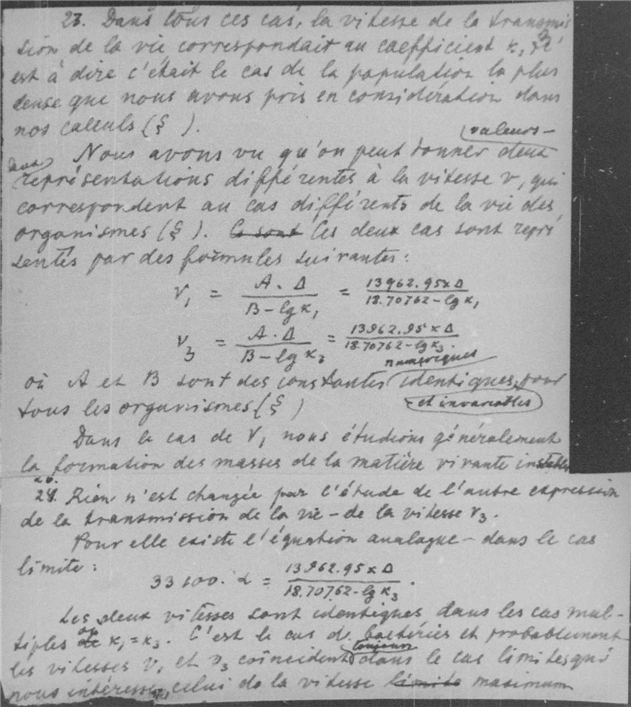 23. Dans tous ces cas, la vitesse de la transmis
sion de la vie correspondait au caefficient κ, c'
est à dire c'était le cas de la population la plus
dense que nous avons pris en considération dans
nos calculs (§ ).
valeurs
Nous avons vu qu'on peut donner deux
représentations différentes à la vitesse v, qui
correspondent au cas différents de la vie des
organismes (§ ). Ce sont Ces deux cas sont repré
sentés par des formules suivantes:
V₁ = A·Δ / B-lgκ₁ = 13962.95×Δ / 18.70762-lgκ₁
V₃ = A·Δ / B-lgκ₃ = 13962.95×Δ / 18.70762-lgκ₃
numériques
où A et B sont des constantes identiques, pour
et invariables
tous les organismes (§ )
Dans le cas de V₁ nous étudions généralement
la formation des masses de la matière vivante
24. Rien n'est changée par l'étude de l'autre expression
de la transmission de la vie – de la vitesse V₃.
Pour elle existe l'équation analogue – dans le cas
limite:
33100·α = 13962.95×Δ / 18.70762-lgκ₃.
Les deux vitesses sont identiques dans les cas mul-
tiples où κ₁=κ₃. C'est le cas de bactéries et probablement
toujours
les vitesses v₁ et v₃ coïncident dans le cas limites qui
nous intéresse, celui de la vitesse limite maximum